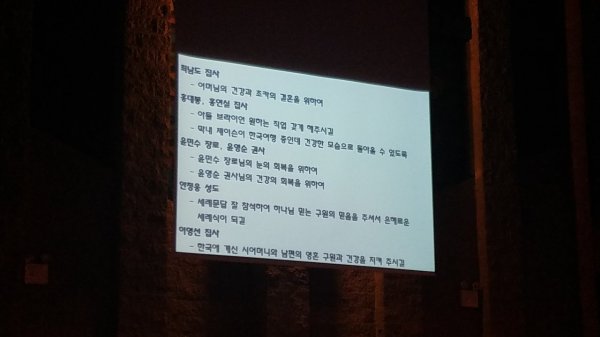 최남도 집사
- 어머님의 건강과 조카의 결혼을 위하여
홍대봉, 홍연실 집사
- 아들 브라이언 원하는 직업 갖게 해주시길
- 막내 제이슨이 한국여행 중인데 건강한 모습으로 돌아올 수 있도록
윤민수 장로, 윤영순 권사
- 윤민수 장로님의 눈의 회복을 위하여
- 윤영순 권사님의 건강의 회복을 위하여
한정웅 성도
- 세례문답 잘 참석하여 하나님 믿는 구원의 믿음을 주셔서 은혜로운
세례식이 되길
이영선 집사
- 한국에 계신 시어머니와 남편의 영혼 구원과 건강을 지켜 주시길